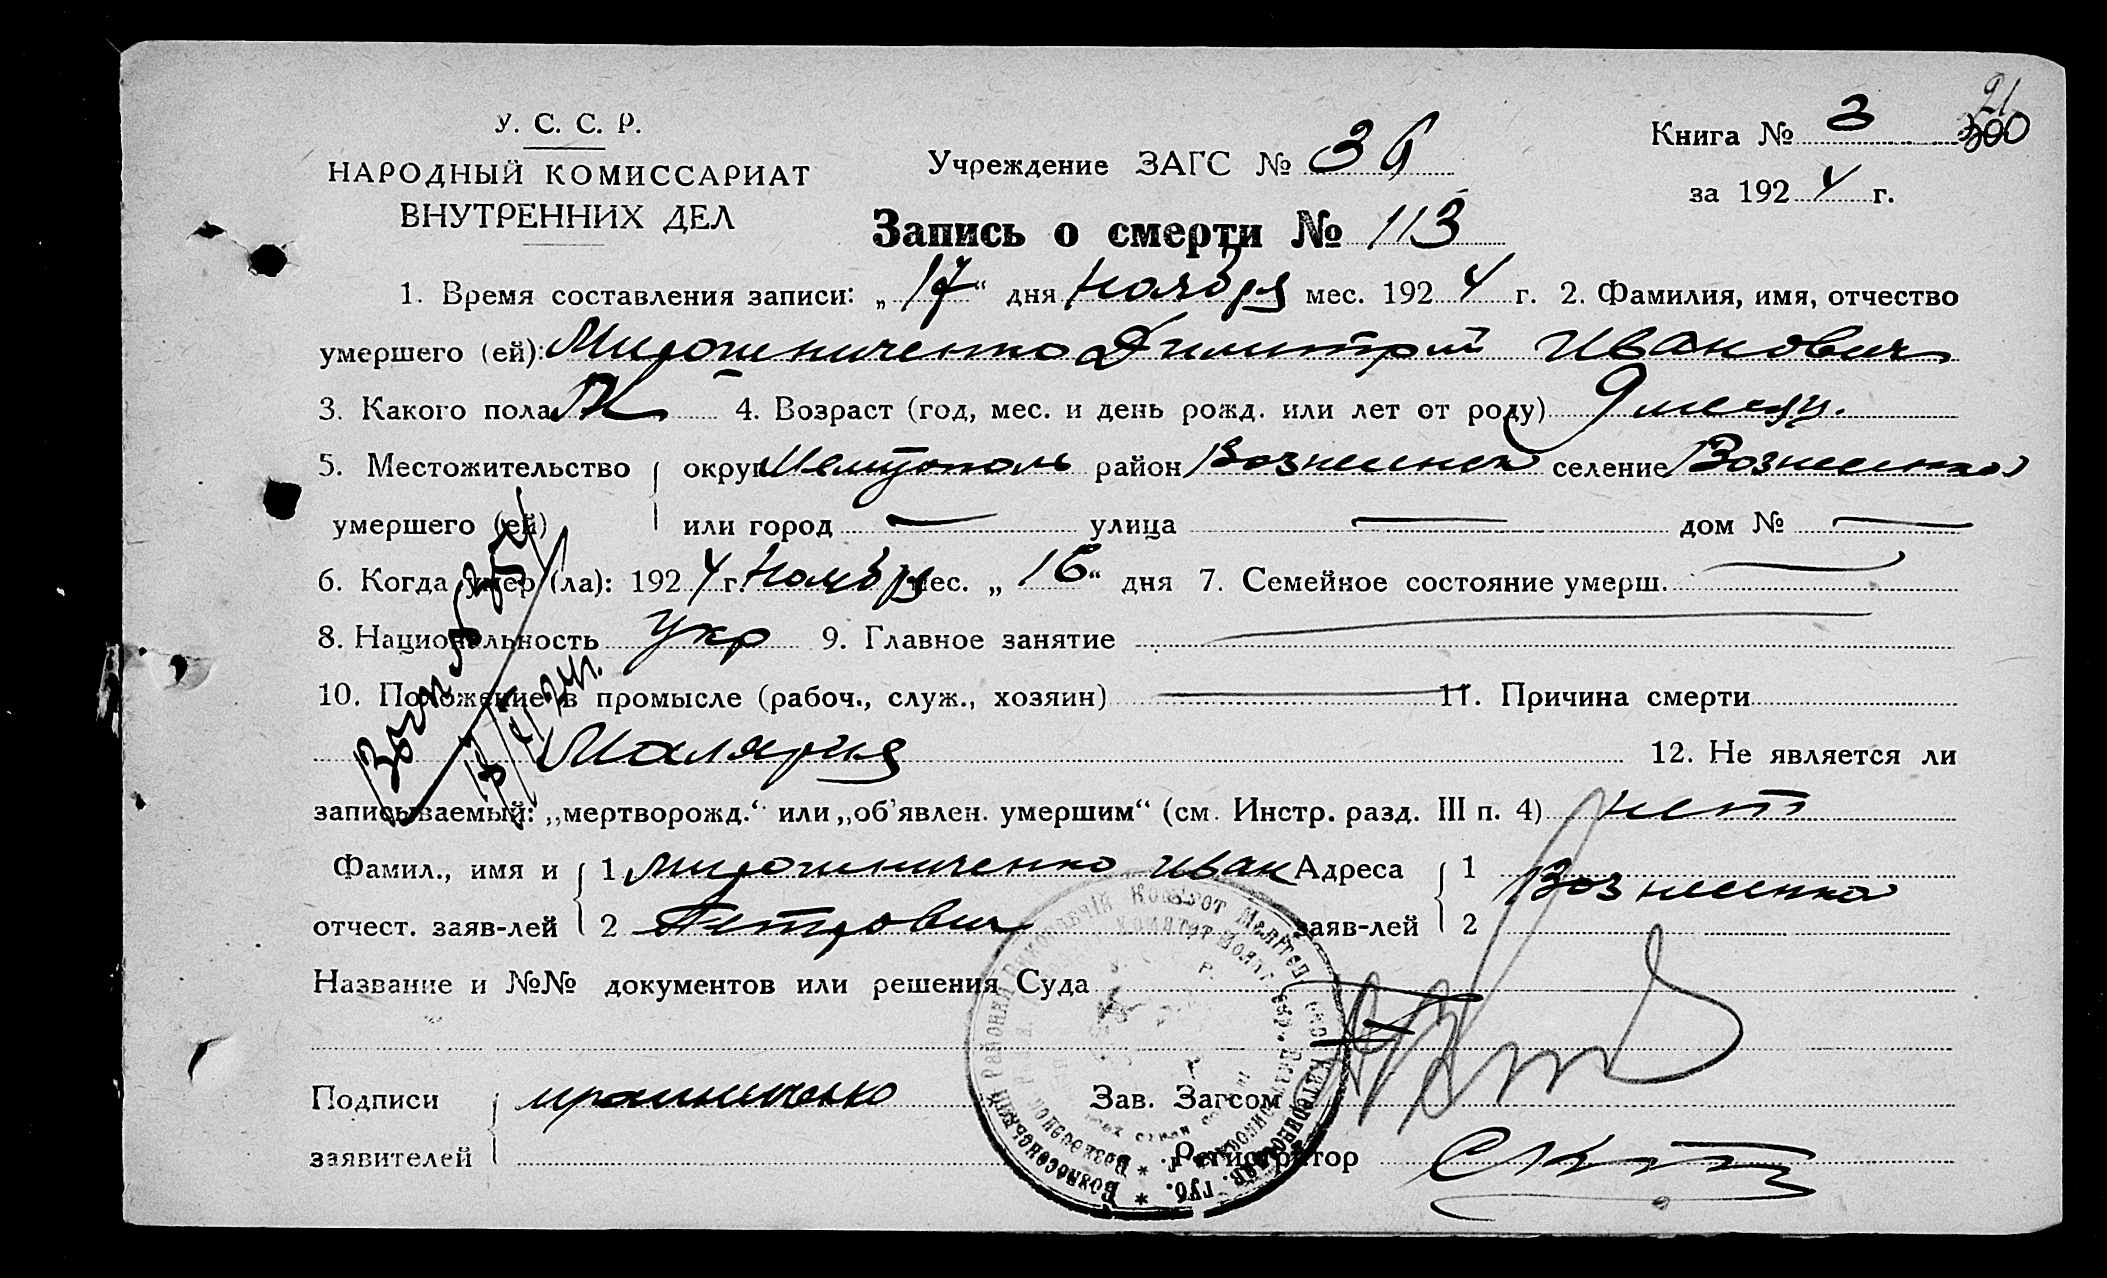 У. С. С. Р.
НАРОДНЫЙ КОМИССАРИАТ
ВНУТРЕННИХ ДЕЛ
Учреждение ЗАГС № 36
Книга № 3
21
300
за 1924 г.
Запись о смерти № 113
1. Время составления записи: „17“ дня Ноября мес. 1924 г. 2. Фамилия, имя, отчество
умершего (ей): Мирошниченко Димитрий Иванович
3. Какого пола М 4. Возраст (год, мес. и день рожд. или лет от роду) 9 месяц.
5. Местожительство округ Мелитополь район Вознесенск селение Вознесенка
умершего (ей) или город — улица — дом № —
6. Когда умер (ла): 1924 г. Ноября мес. „16“ дня 7. Семейное состояние умерш. —
8. Национальность Укр 9. Главное занятие —
10. Положение в промысле (рабоч., служ., хозяин) — 11. Причина смерти
Малярия 12. Не является ли
записываемый: „мертворожд.“ или „об’явлен. умершим“ (см. Инстр. разд. III п. 4) нет
Фамил., имя и 1 Мирошниченко Иван Адреса 1 Вознесенка
отчест. заяв-лей 2 Петрович заяв-лей 2
Название и №№ документов или решения Суда —
Подписи Мрошниченко Зав. Загсом
заявителей Регистратор